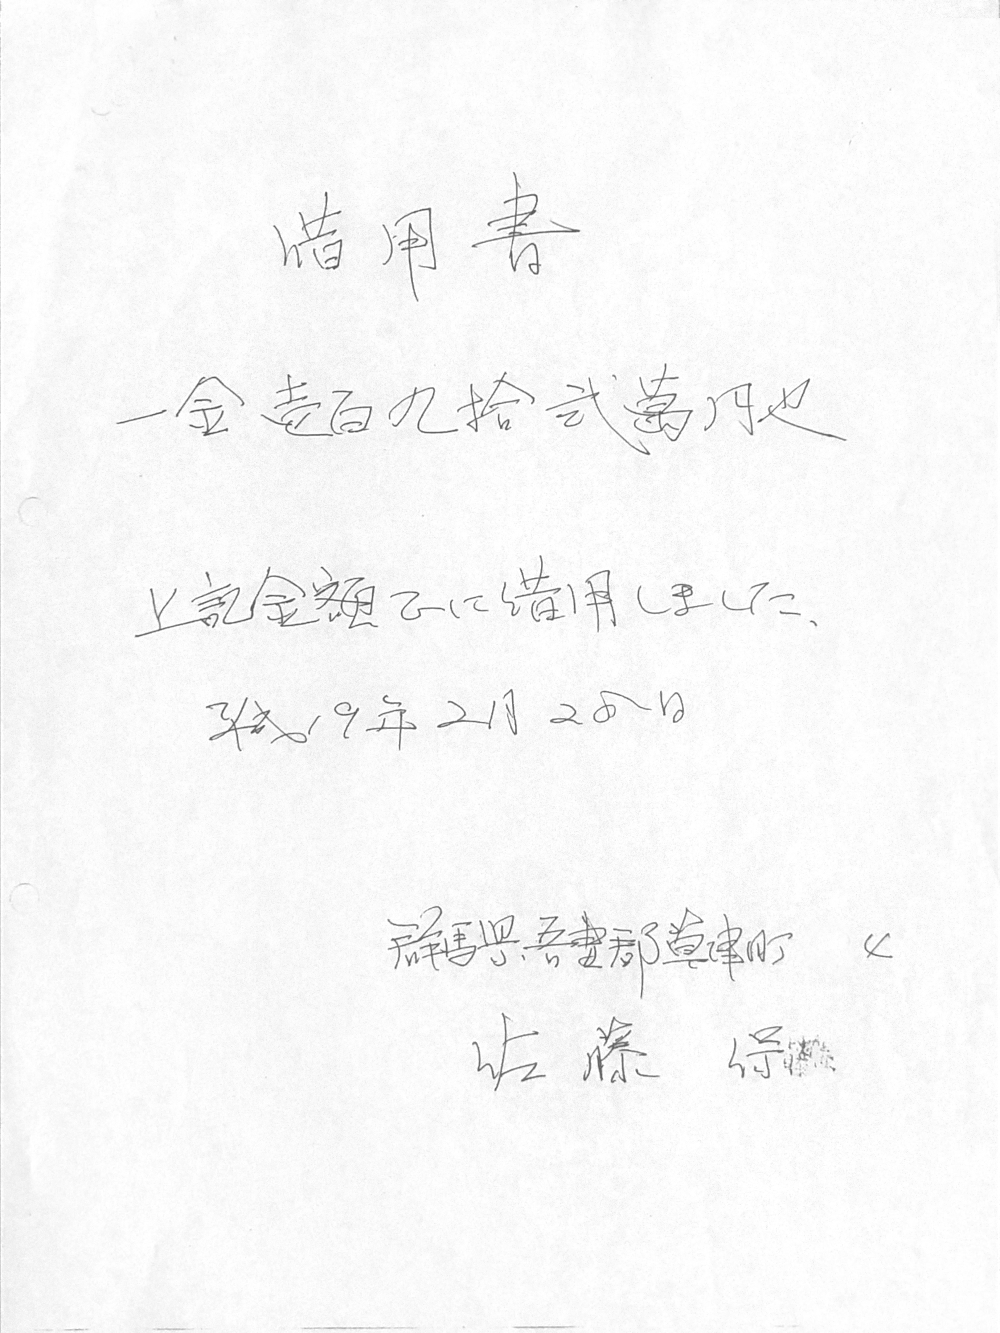 借用書
一金壱百九拾弐萬円也
上記金額正に借用しました、
平成19年2月28日
群馬県吾妻郡草津町
佐藤 保